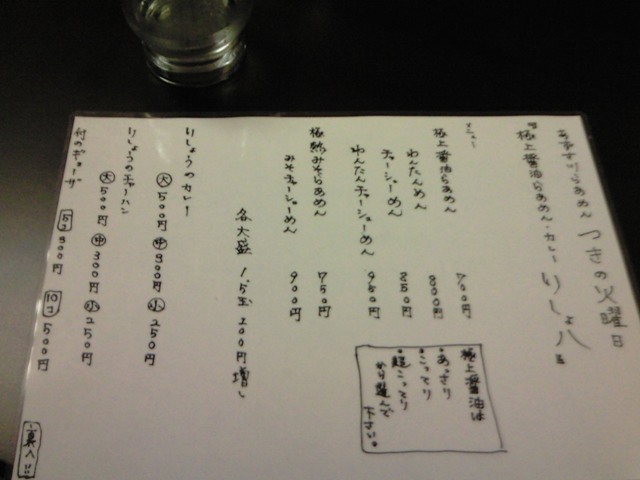 つきの火曜日
極上醤油らあめん・カレー りしょ八
メニュー
極上醤油らあめん 700円
わんたんめん 800円
チャーシューめん 850円
わんたんチャーシューめん 950円
極熟みそらあめん 750円
みそチャーシューめん 900円
各大盛 1.5玉 200円増し
りしょうのカレー
大 500円 中 300円 小 250円
りしょうのチャーハン
大 500円 中 300円 小 250円
付のギョーザ
5コ 300円 10コ 500円
極上醤油は
・あっさり
・こってり
・超こってり
から選んで
下さい。
裏へ!!